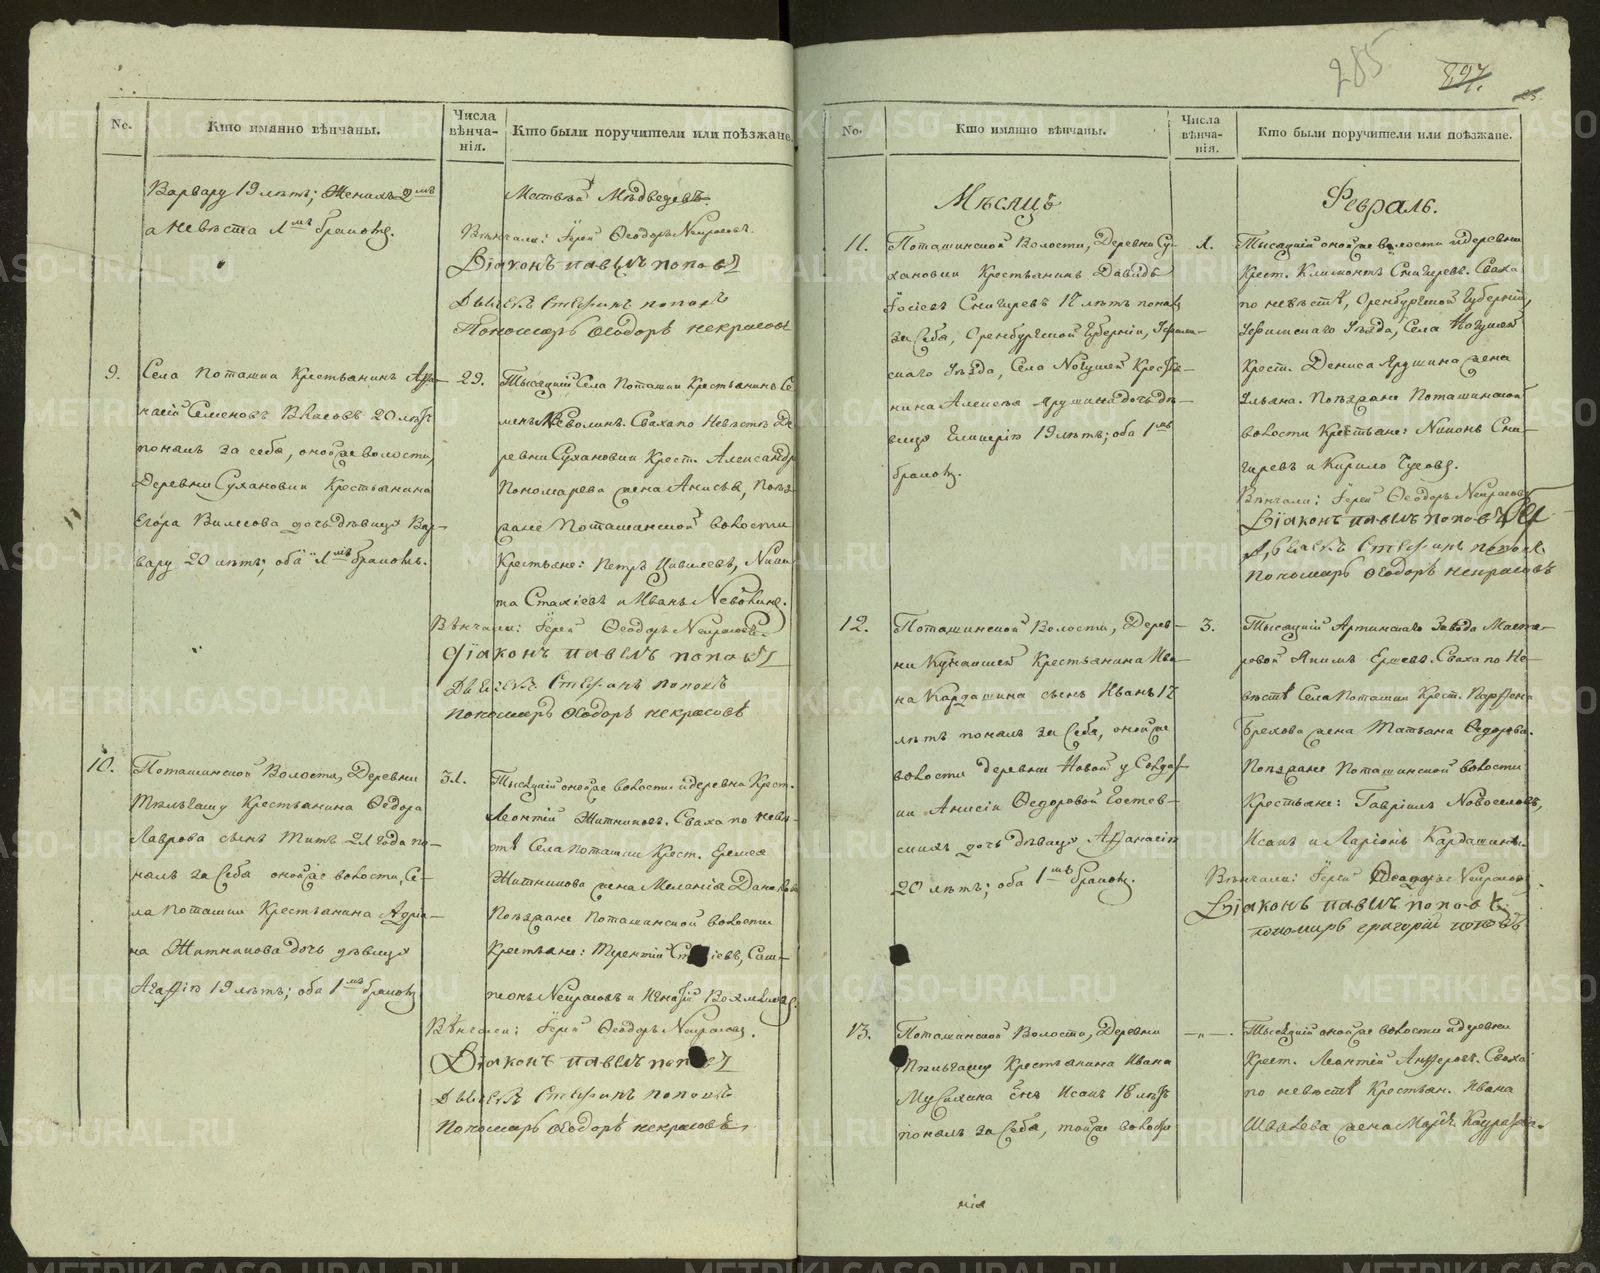 285
897.
25.
No.
Кто имянно вѣнчаны.
Числа вѣнча-нія.
Кто были поручители или поѣзжане.
Варвару 19 лѣтъ; Женихъ 2мъ
а невѣста 1мъ бракомъ.
Матвѣй Мѣдведевъ.
Вѣнчали: Іерей Ѳеодоръ Некрасовъ.
Діаконъ павелъ поповъ
Дьячекъ Стефанъ поповъ
Пономарь Ѳеодоръ некрасовъ
9.
Села Поташки Крестьянинъ Афа-
насій Семеновъ Власовъ 20 лѣтъ
понялъ за себя, оной же волости,
Деревни Сухановки Крестьянина
Егора Вилисова дочь дѣвицу Вар-
вару 20 лѣтъ; оба 1мъ бракомъ.
29.
Тысяцкій Села Поташки Крестьянинъ Се
менъ Неволинъ. Сваха по Невѣстѣ Де
ревни Сухановки Крест. Александр
Пономарева жена Анисья, Поѣз-
жане Поташинской волости
Крестьяне: Петръ Цивилевъ, Ники
та Стахіевъ и Иванъ Неволинъ.
Вѣнчали: Іерей Ѳеодоръ Некрасовъ.
Діаконъ павелъ поповъ
Дьячекъ Стефанъ поповъ
Пономарь Ѳеодоръ некрасовъ
10.
Поташинской Волости, Деревни
Крестьянина Ѳедора
Лаврова сынъ Титъ 21 года по-
нялъ за себя оной же волости, Се-
ла Поташки Крестьянина Адрі-
на Житникова дочь дѣвицу
Агафію 19 лѣтъ; оба 1мъ бракомъ.
31.
Тысяцкій оной же волости и деревни Крест.
Леонтій Житниковъ. Сваха по невѣ-
стѣ Села Поташки Крест. Еремея
Житникова жена Меланія
Поѣзжане Поташинской волости
Крестьяне: Терентій Ст іевъ, Сам-
сонъ Некрасовъ и Игнатій
Вѣнчали: Іерей Ѳеодоръ Некрасовъ.
Діаконъ павелъ поповъ
Дьячекъ Стефанъ поповъ
Пономарь Ѳеодоръ некрасовъ.
No.
Кто имянно вѣнчаны.
Числа вѣнча-нія.
Кто были поручители или поѣзжане.
Мѣсяцъ
Февраль.
11.
Поташинской Волости, Деревни Су-
хановки Крестьянинъ Давыдъ
Іосіевъ Снигиревъ 18 лѣтъ понялъ
за себя, Оренбургской Губерніи, Уфим-
скаго Уѣзда, Села Ногушей Кресть-
нина Алексѣя Ярушина дочь дѣ-
вицу Гликерію 19 лѣтъ; оба 1мъ
бракомъ.
1.
Тысяцкій оной же волости и деревни
Крест. Климонтъ Снигиревъ. Сваха
по невѣстѣ, Оренбургской Губерніи,
Уфимскаго Уѣзда, Села Ногушей
Крест. Дениса Ярушина жена
Ульяна. Поѣзжане Поташинской
волости Крестьяне: Никонъ Сни-
гиревъ и Кирило
Вѣнчали: Іерей Ѳеодоръ Некрасовъ
Діаконъ павелъ поповъ
Дьячекъ Стефанъ поповъ
пономарь Ѳеодоръ некрасовъ
12.
Поташинской Волости, Дерев-
ни Крестьянина Ива-
на Кардашина сынъ Иванъ 18
лѣтъ понялъ за себя, оной же
волости деревни Новой у Солдат
ки Анисіи Ѳедоровой
дочь дѣвицу Афанасію
20 лѣтъ; оба 1мъ бракомъ.
3.
Тысяцкій Артинскаго Завода Масте-
ровой Якимъ Ершевъ. Сваха по Не-
вѣстѣ Села Поташки Крест. Парфена
Брехова жена Татьяна Ѳедорова.
Поѣзжане Поташинской волости
Крестьяне: Гавріилъ Новоселовъ,
Исакъ и Ларіонъ Кардашины.
Вѣнчали: Іерей Ѳеодоръ Некрасовъ.
Діаконъ павелъ поповъ
пономарь григорій поповъ
13.
Поташинской Волости, Деревни
Крестьянина Ивана
сынъ Исакъ 18 лѣтъ
понялъ за себя, той же волости
—„—.
Тысяцкій оной же волости и деревни
Крест. Леонтій Сваха
по невѣстѣ Крестьян. Ивана
Швалева жена
нія
METRIKI.GASO-URAL.RU